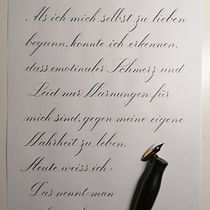 Als ich mich selbst zu lieben
begann, konnte ich erkennen,
dass emotinaler Schmerz und
Leid nur Warnungen für
mich sind, gegen meine eigene
Wahrheit zu leben.
Heute weiss ich:
Das nennt man